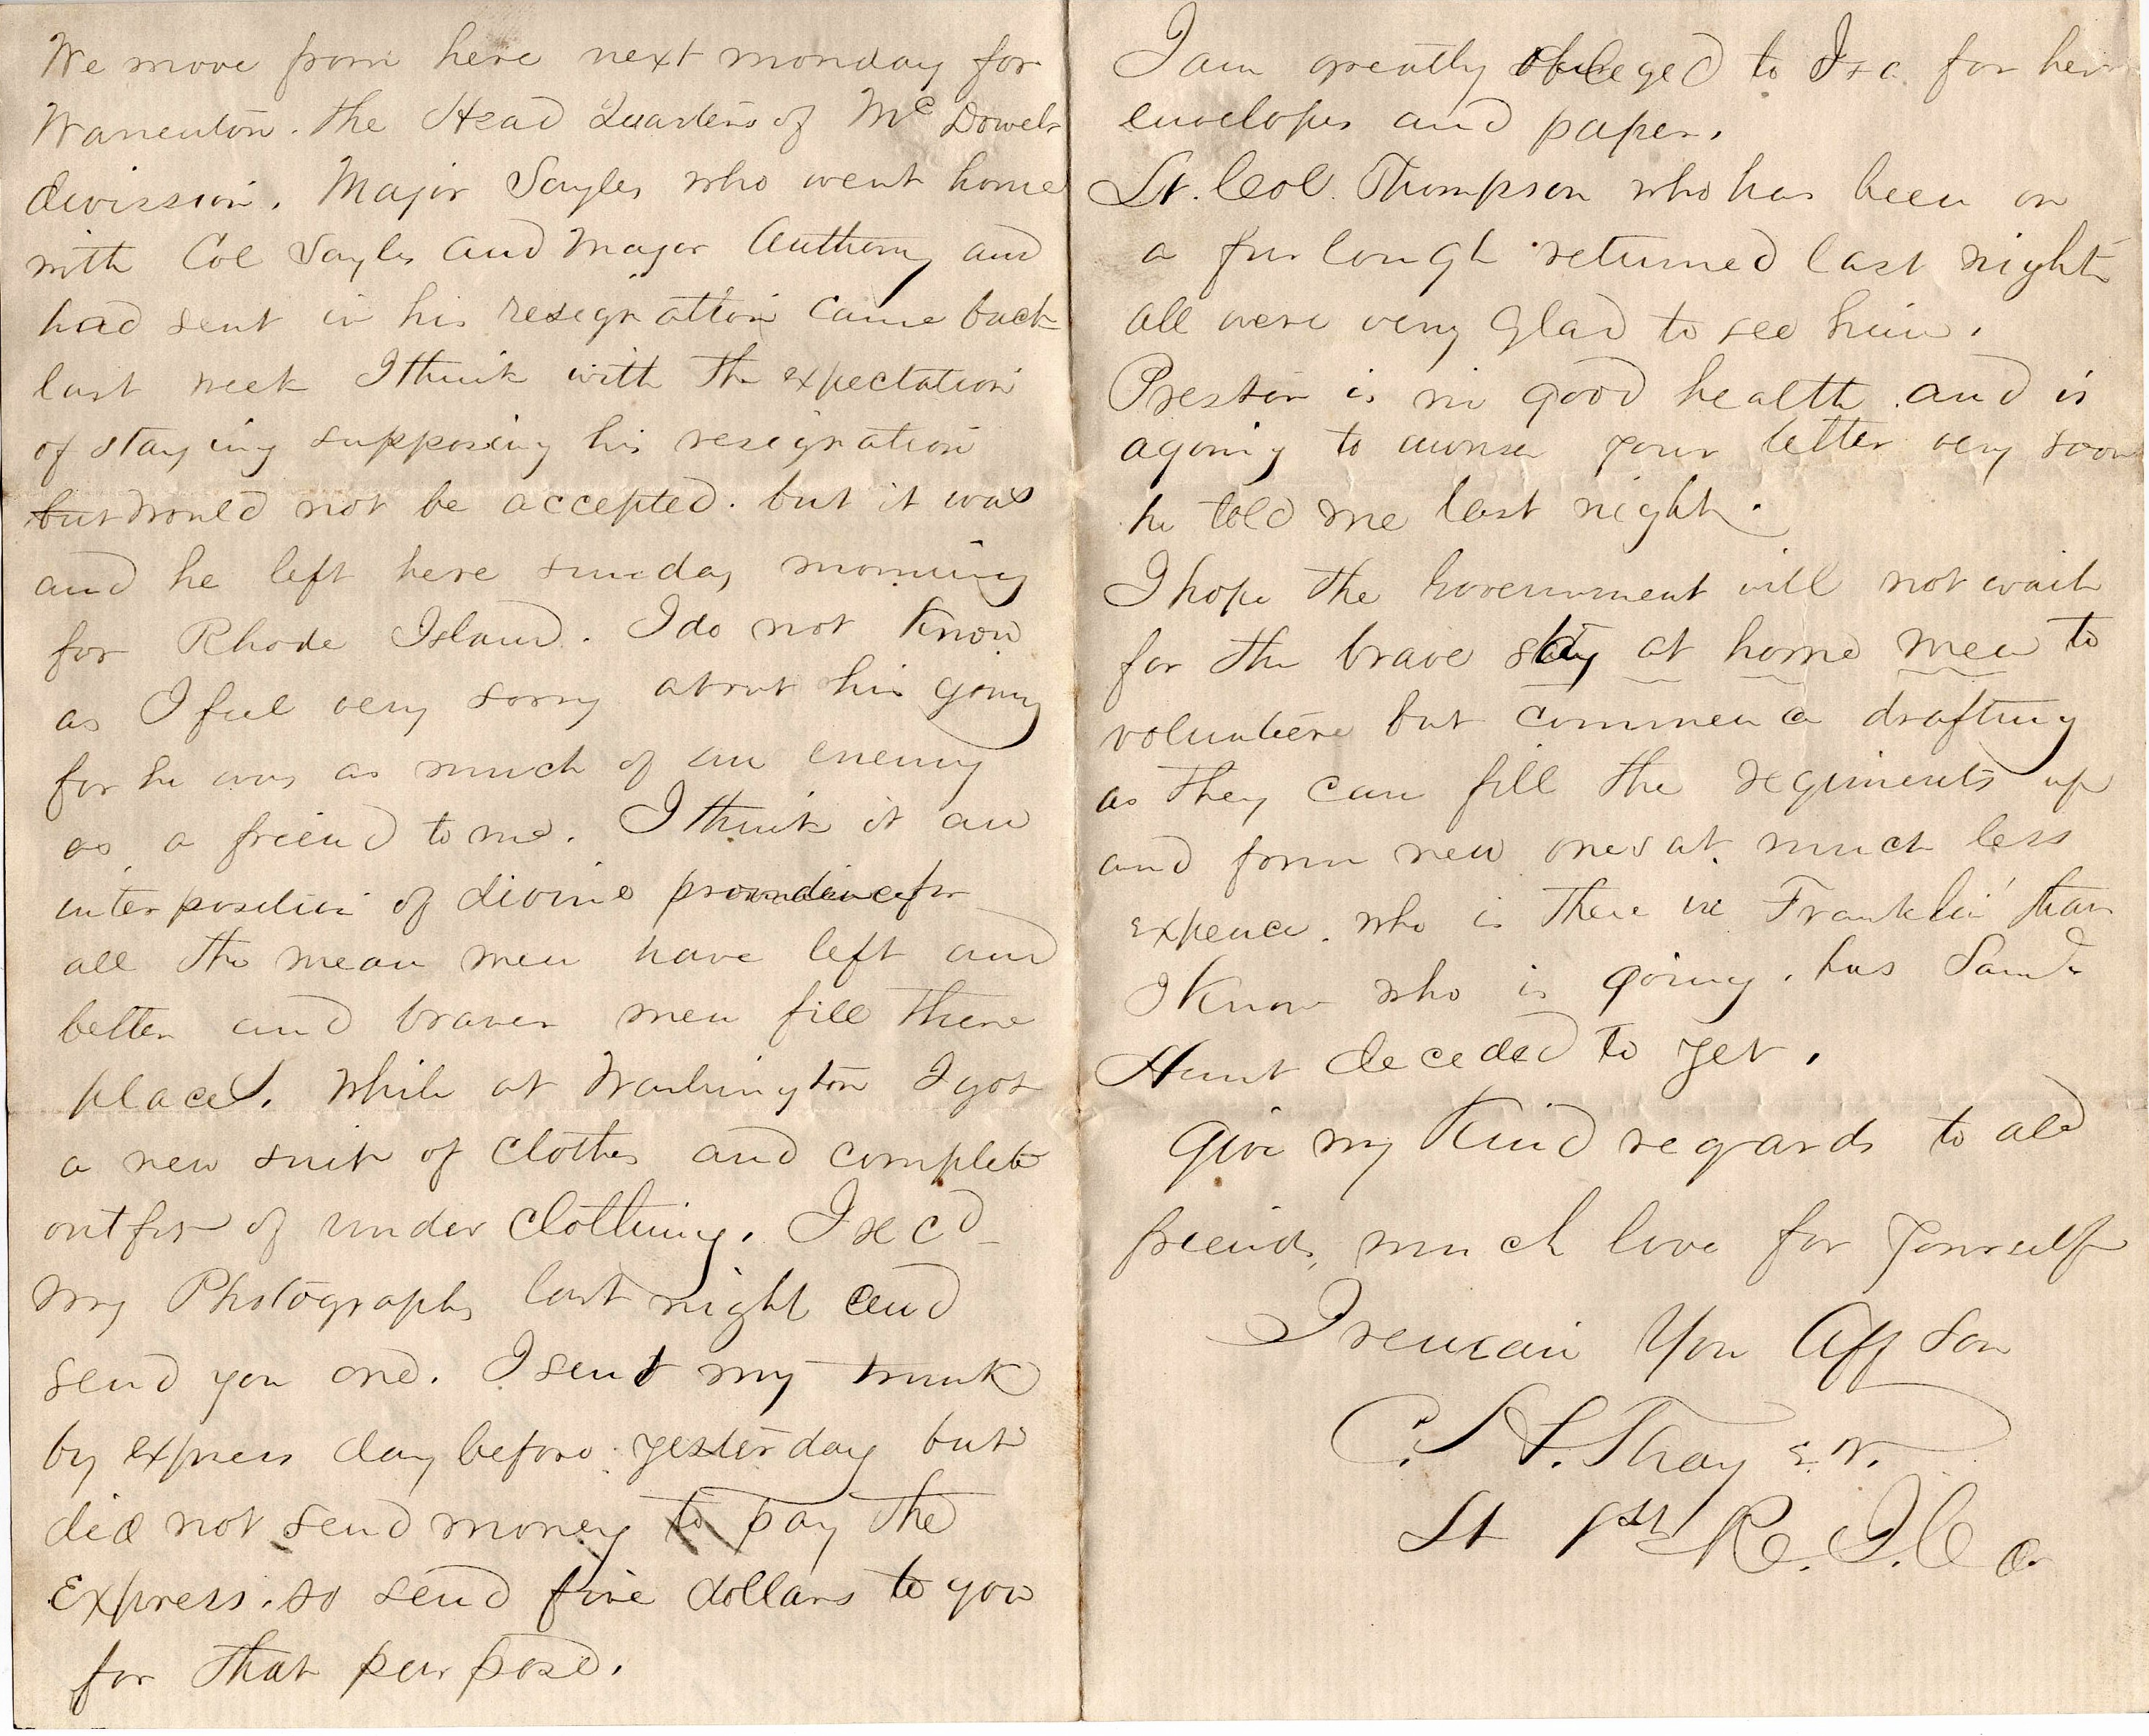 We move from here next monday for
Warrenton. the Head Quarters of McDowels
divission. Major Sayles who went home
with Col Sayles and Major Anthony and
had sent in his resignattion came back
last week I think with the expectation
of staying supposing his resignation
but would not be accepted. but it was
and he left here sunday morning
for Rhode Island. I do not know
as I feel very sorry about his going
for he was as much of an enemy
as a friend to me. I think it an
interposition of divine providence for
all the mean men have left and
better and braver men fill there
places. While at Washington I got
a new suit of clothes and complete
outfit of under clothing. I recd
my Photographs last night and
send you one. I sent my trunk
by express day before yesterday but
did not send money to pay the
Express. so send five dollars to you
for that purpose.
I am greatly obleged to Isa for her
envelopes and paper.
Lt. Col. Thompson who has been on
a furlough returned last night
all were very glad to see him.
Preston is in good health and is
agoing to awnser your letter very soon
he told me last night.
I hope the Government will not wait
for the brave stay at home men to
volunteere but commence drafting
as they can fill the regiments up
and form new ones at much less
expence. who is there in Franklin that
I know who is going. has Saml
Hunt deceded to yet.
Give my Kind regards to all
friends, much love for yourself
I remain You Aff Son
C. H. F. Thayer.
Lt 1st R. I. Ca